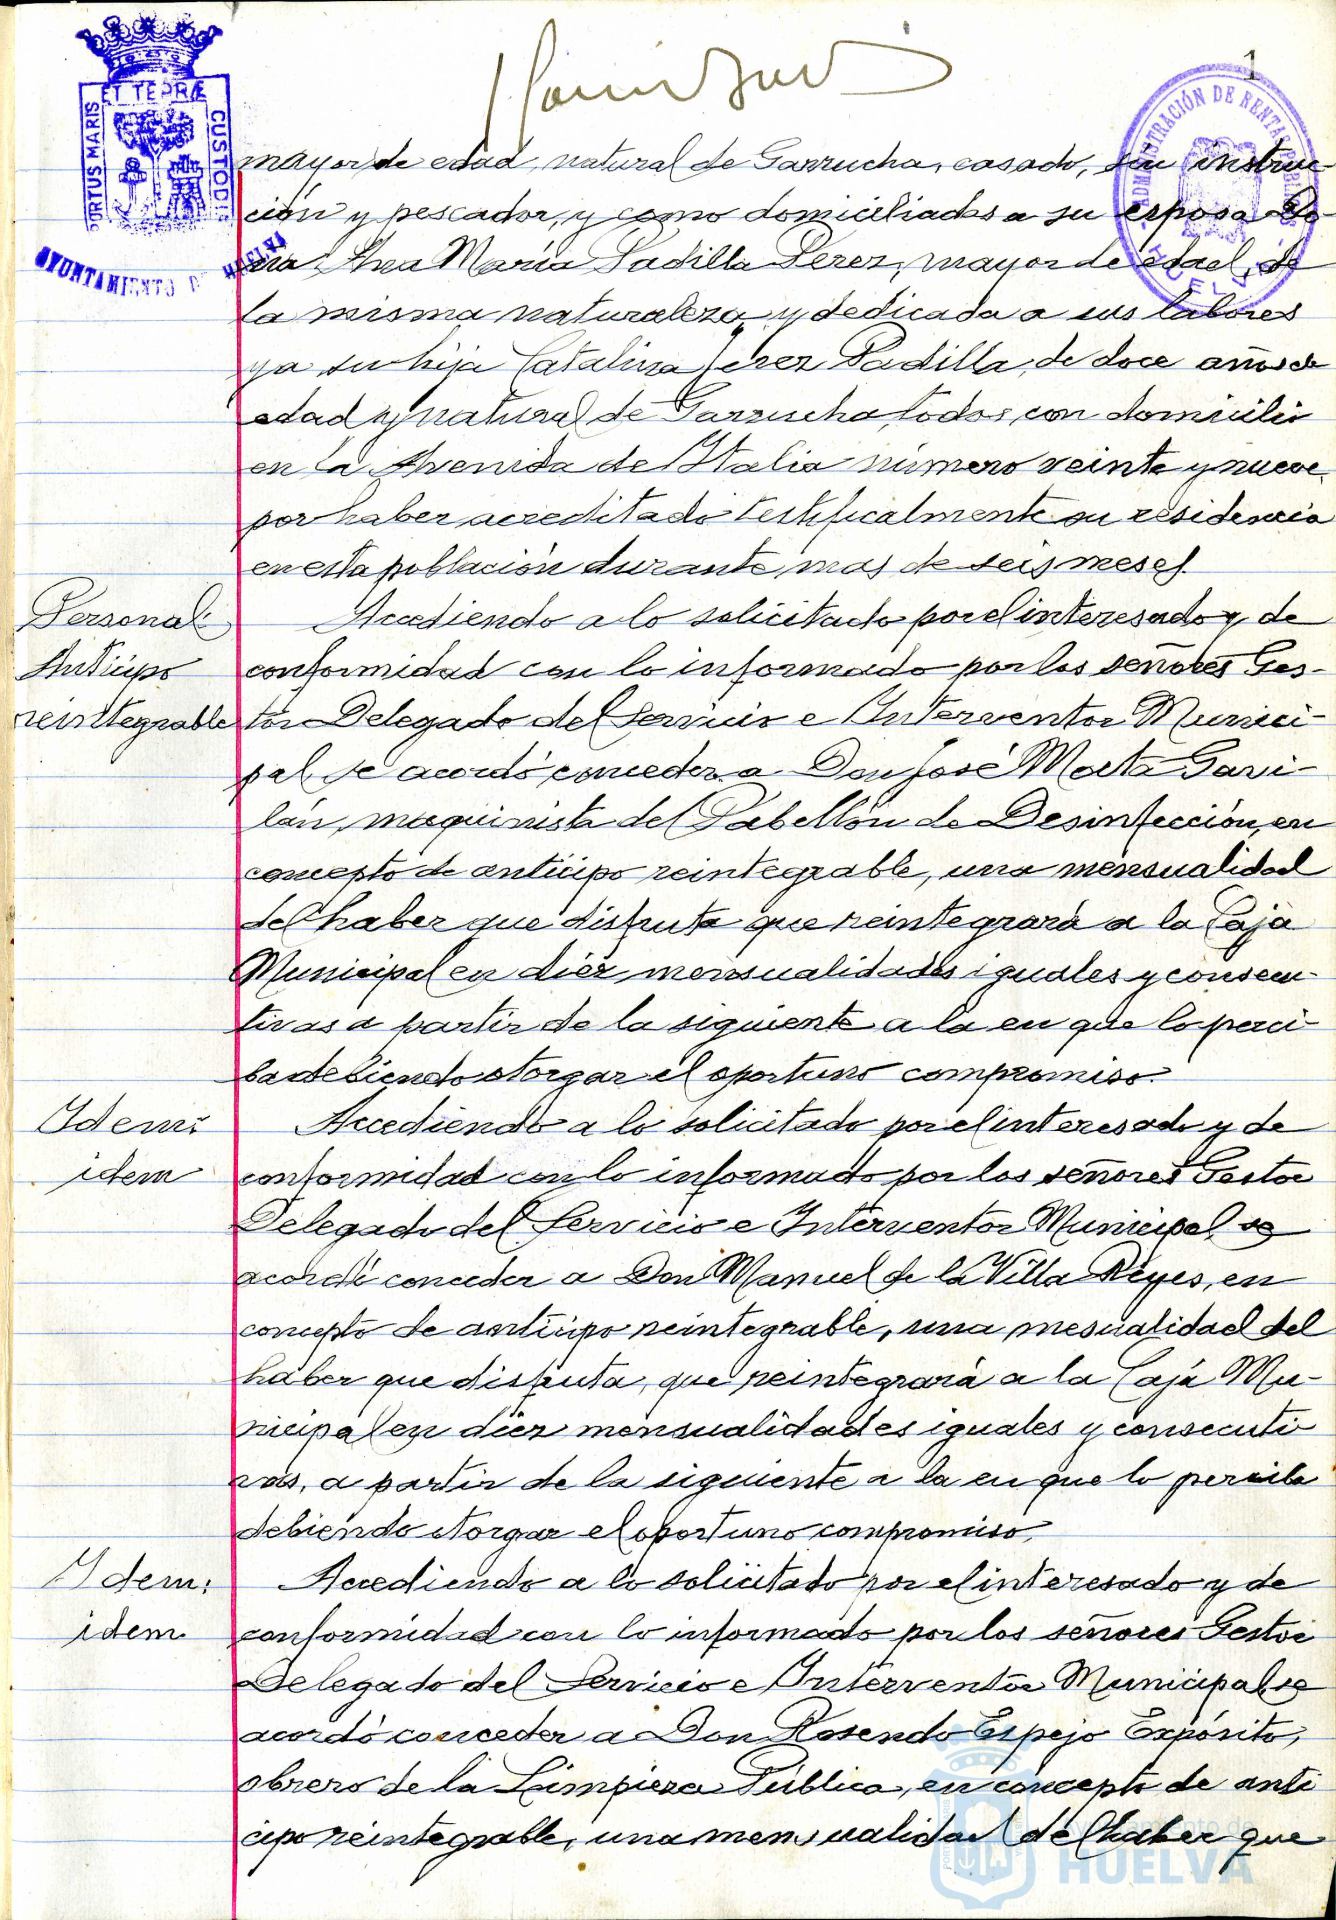 1
ET TERRÆ
PORTUS MARIS
CUSTODIA
AYUNTAMIENTO DE HUELVA
ADMINISTRACIÓN DE RENTAS PÚBLICAS
HUELVA
mayor de edad, natural de Garrucha, casado, sin instruc-
ción y pescador, y como domiciliadas a su esposa Do-
ña Ana María Padilla Pérez, mayor de edad, de
la misma naturaleza y dedicada a sus labores
y a su hija Catalina Jerez Padilla, de doce años de
edad y natural de Garrucha, todos, con domicilio
en la Avenida de Italia número veinte y nueve,
por haber acreditado testificalmente su residencia
en esta población durante mas de seis meses.
Personal:
Anticipo
reintegrable
Accediendo a lo solicitado por el interesado y de
conformidad con lo informado por los señores Ges-
tor Delegado del Servicio e Interventor Munici-
pal se acordó conceder a Don José Macta Gavi-
lán, maquinista del Pabellón de Desinfección, en
concepto de anticipo reintegrable, una mensualidad
del haber que disfruta que reintegrará a la Caja
Municipal en diéz mensualidades iguales y consecu-
tivas a partir de la siguiente a la en que lo perci-
ba debiendo otorgar el oportuno compromiso.
Idem:
idem
Accediendo a lo solicitado por el interesado y de
conformidad con lo informado por los señores Gestor
Delegado del Servicio e Interventor Municipal se
acordó conceder a Don Manuel de la Villa Reyes, en
concepto de anticipo reintegrable, una mesualidad del
haber que disfruta, que reintegrará a la Caja Mu-
nicipal en diéz mensualidades iguales y consecuti
vas, a partir de la siguiente a la en que lo perciba
debiendo otorgar el oportuno compromiso.
Idem:
idem.
Accediendo a lo solicitado por el interesado y de
conformidad con lo informado por los señores Gestor
Delegado del Servicio e Interventor Municipal se
acordó conceder a Don Rosendo Espejo Expósito,
obrero de la Limpieza Pública, en concepto de anti
cipo reintegrable, una mensualidad del haber que
Ayuntamiento de
HUELVA